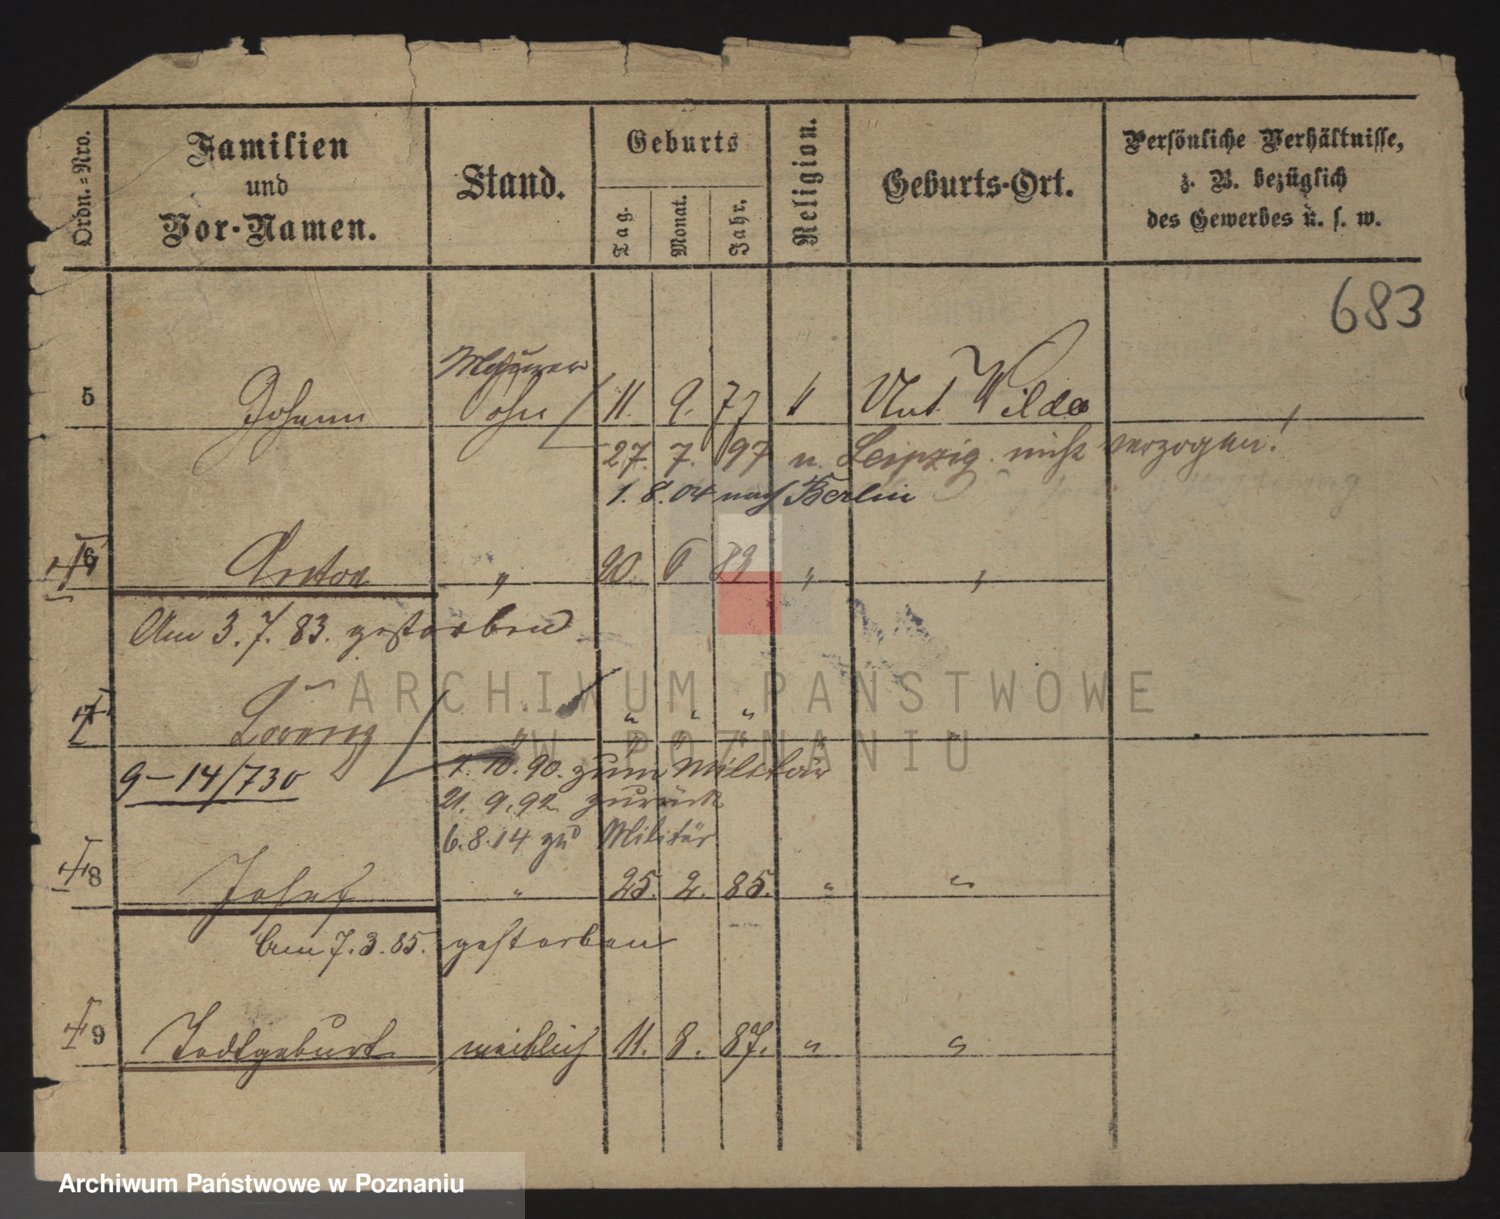 Ordn.-Nro.
Familien
und
Vor-Namen.
Stand.
Geburts
Tag.
Monat.
Jahr.
Religion.
Geburts-Ort.
Persönliche Verhältnisse,
z. B. bezüglich
des Gewerbes u. s. w.
683
Maurer
5 Johann Sohn 11. 9. 77 " Unt. Wilda
27. 7. 97 n. Leipzig nicht verzogen!
1. 8. 04 nach Berlin
6 Anton " 20. 6 82 " "
Am 3. 7. 83. gestorben
7 Lorenz " " " "
9-14/730 1. 10. 90. zum Militär
21. 9. 92 zurück
6. 8. 14 zu Militär
8 Josef " 25. 2. 85. " "
Am 7. 3. 85. gestorben
9 Todtgeburt weiblich 11. 8. 87. " "
ARCHIWUM PAŃSTWOWE
W POZNANIU
Archiwum Państwowe w Poznaniu